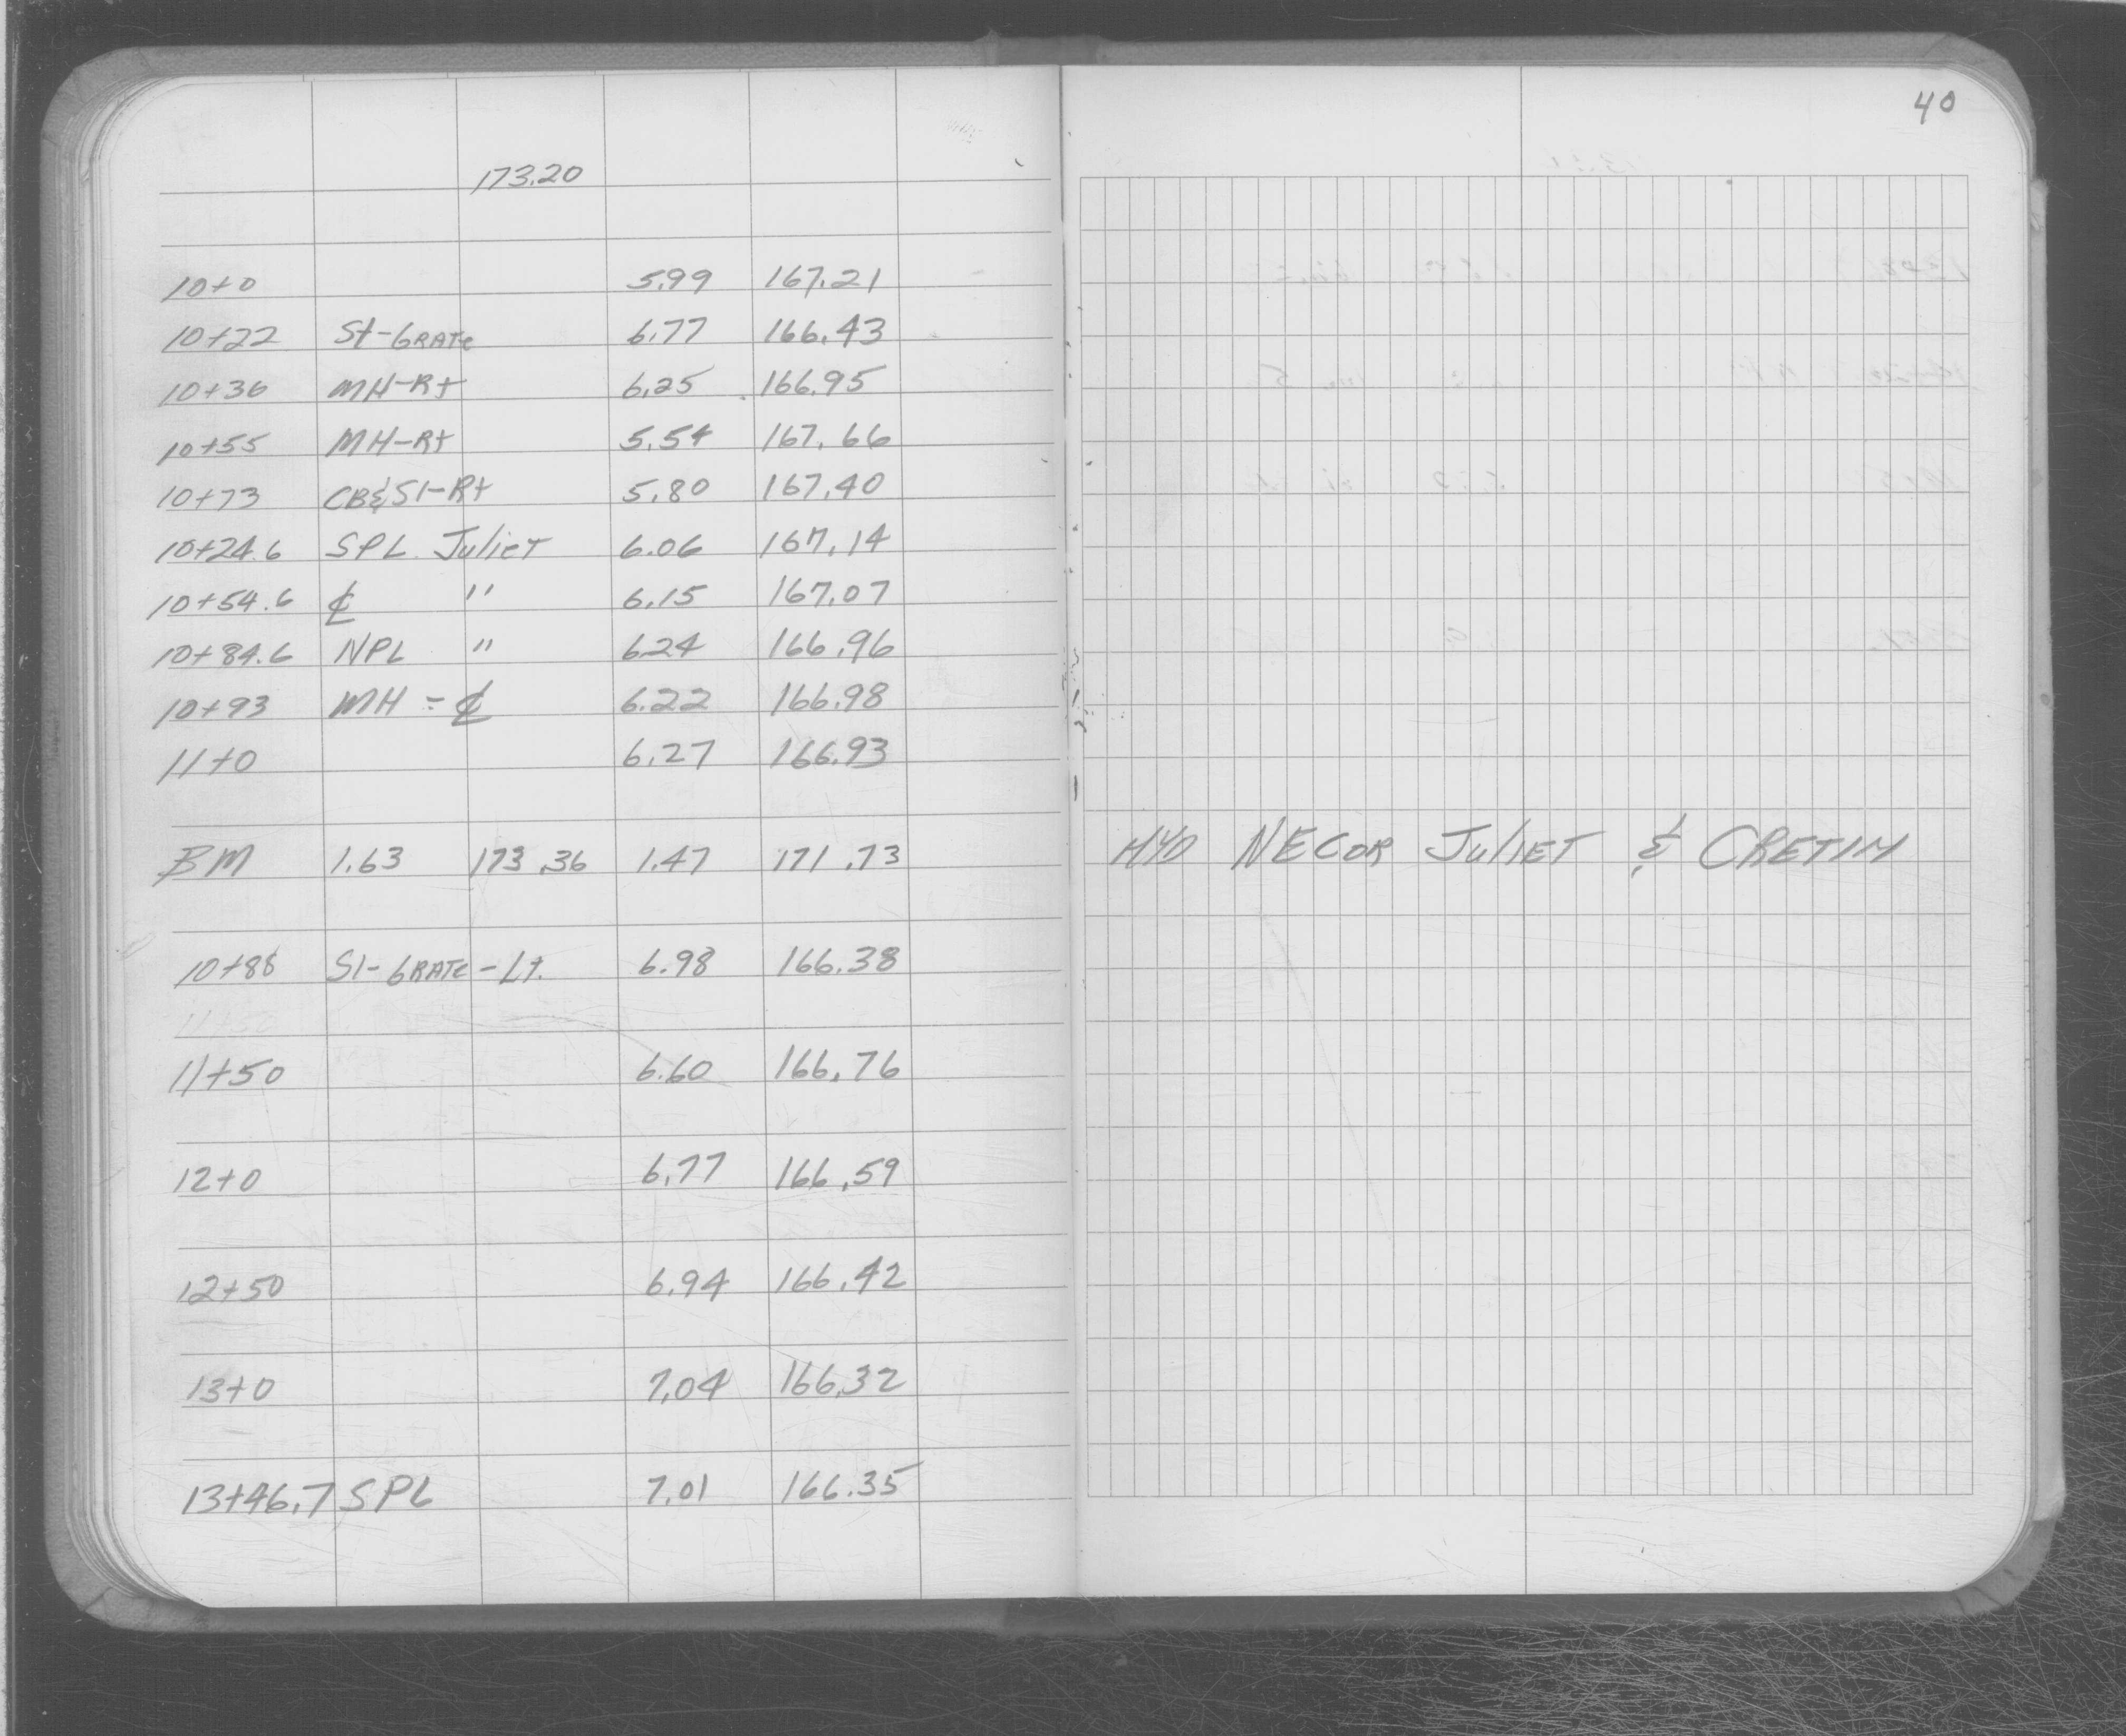 40
173.20
10+0 5.99 167.21
10+22 St-GRATE 6.77 166.43
10+36 MH-Rt 6.25 166.95
10+55 MH-Rt 5.54 167.66
10+73 CB&SI-Rt 5.80 167.40
10+24.6 SPL Juliet 6.06 167.14
10+54.6 ℄ " 6.15 167.07
10+84.6 NPL " 6.24 166.96
10+93 MH = ℄ 6.22 166.98
11+0 6.27 166.93
BM 1.63 173.36 1.47 171.73 HYD NECOR JULIET & CRETIN
10+88 SI-GRATE-Lt. 6.98 166.38
11+50 6.60 166.76
12+0 6.77 166.59
12+50 6.94 166.42
13+0 7.04 166.32
13+46.7 SPL 7.01 166.35